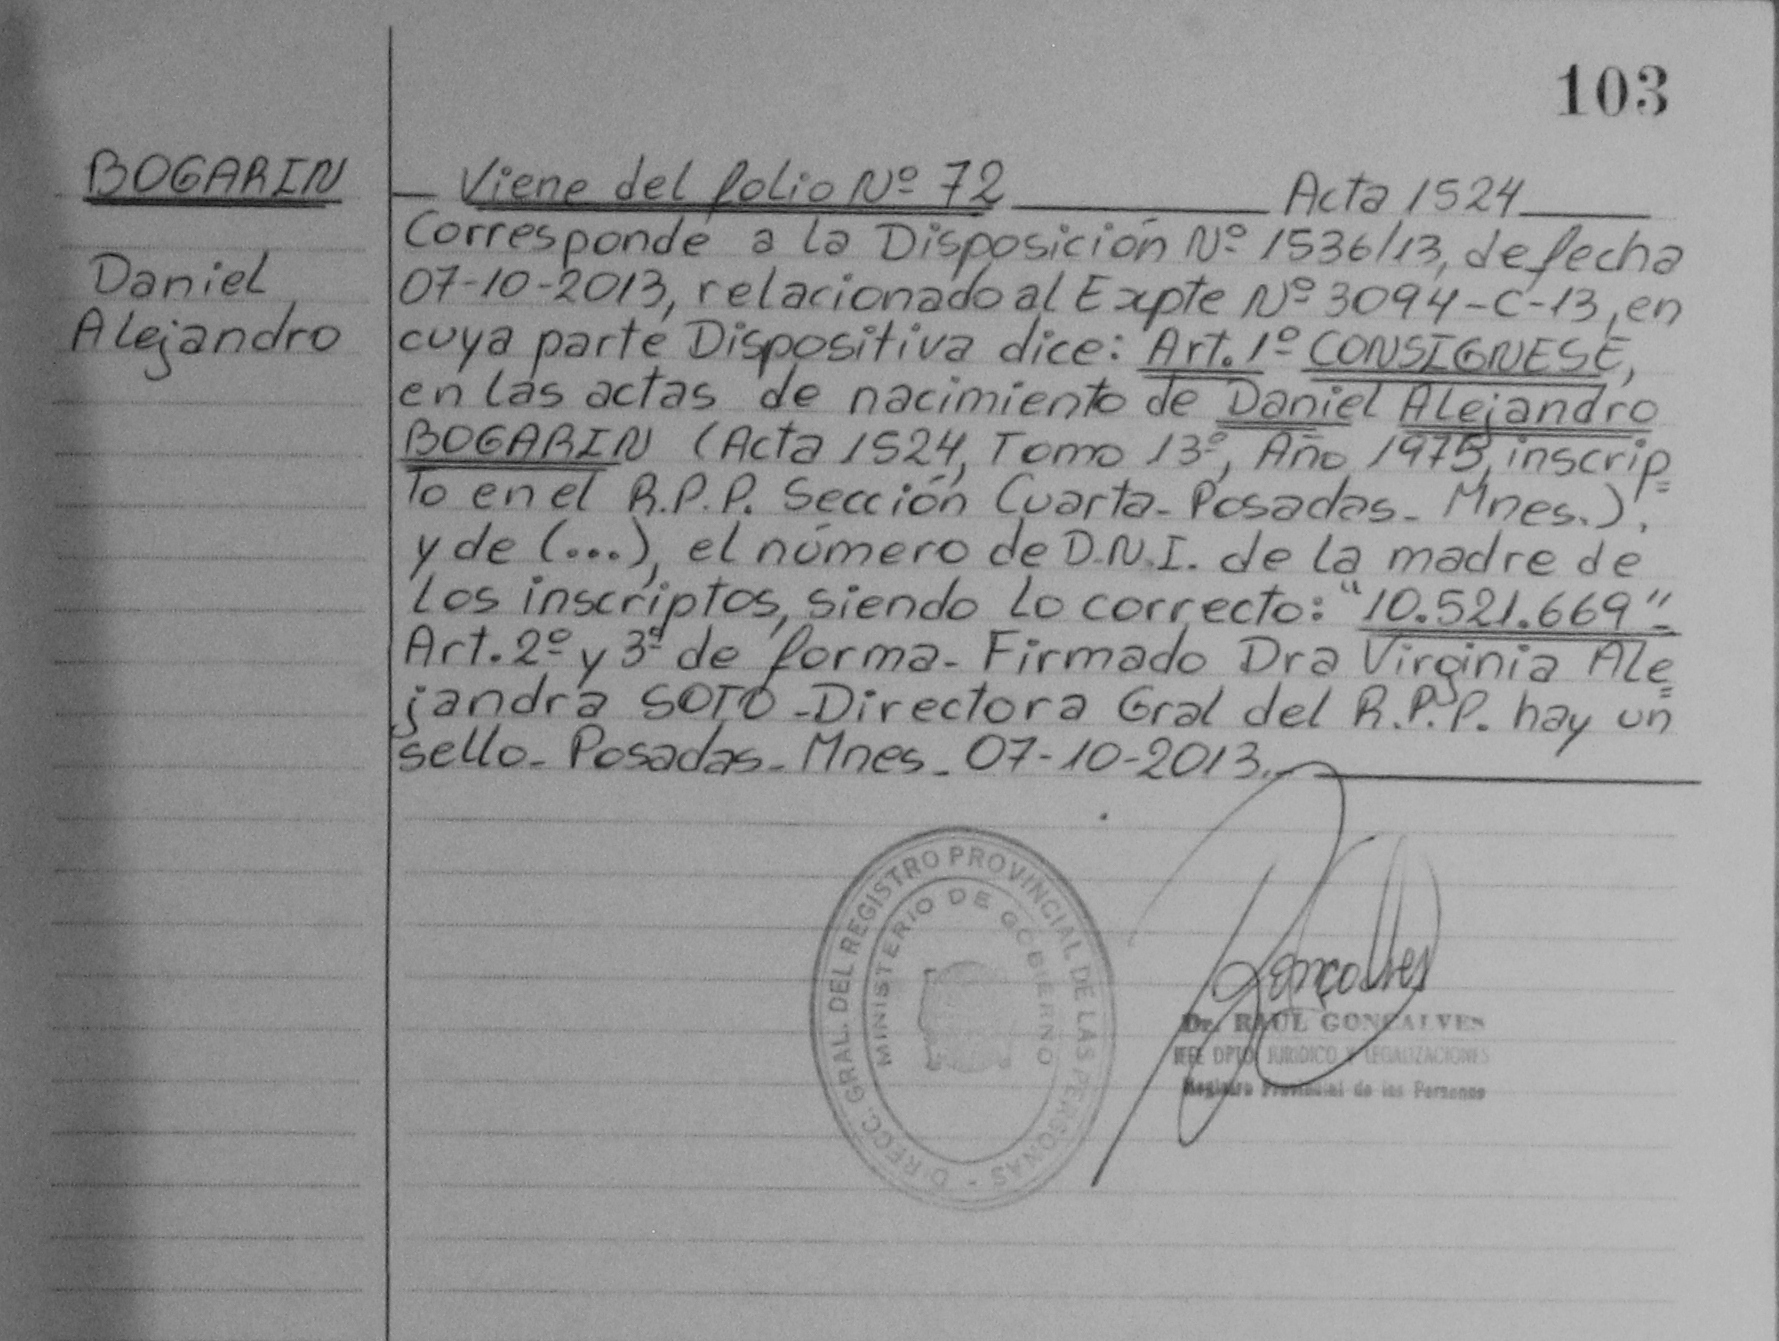 103
BOGARIN
Daniel
Alejandro
Viene del folio Nº 72 Acta 1524
Corresponde a la Disposición Nº 1536/13, de fecha
07-10-2013, relacionado al Expte Nº 3094-C-13, en
cuya parte Dispositiva dice: Art. 1º CONSIGNESE,
en las actas de nacimiento de Daniel Alejandro
BOGARIN (Acta 1524, Tomo 13º, Año 1975, inscrip=
to en el R.P.P. Sección Cuarta - Posadas - Mnes.).
y de (...), el número de D.N.I. de la madre de
los inscriptos, siendo lo correcto: "10.521.669"-
Art. 2º y 3º de forma - Firmado Dra Virginia Ale=
jandra SOTO - Directora Gral del R.P.P. hay un
sello - Posadas - Mnes - 07-10-2013.-
DIRECC. GRAL. DEL REGISTRO PROVINCIAL DE LAS PERSONAS -
MINISTERIO DE GOBIERNO
Gonçalves
Dr. RAUL GONCALVES
JEFE DPTO. JURIDICO Y LEGALIZACIONES
Registro Provincial de las Personas